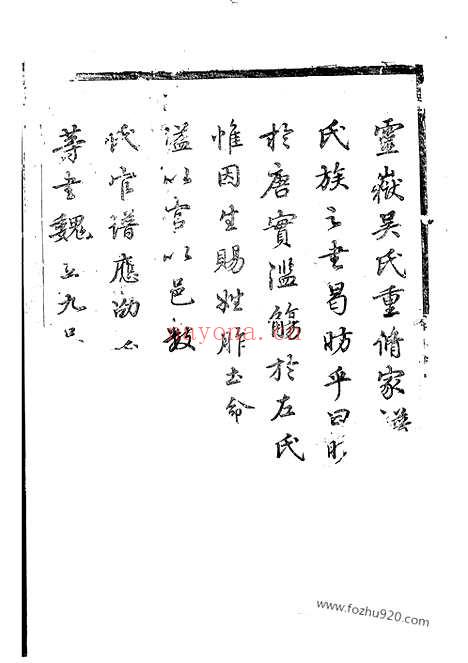 靈嶽吳氏重脩家
氏族之書昌昉乎曰
於唐實濫觴於左氏
惟因生賜姓胙土命
謚以官以邑
氏官譜應劭
等書魏立九
nyona.cn
www.fozhu920.com